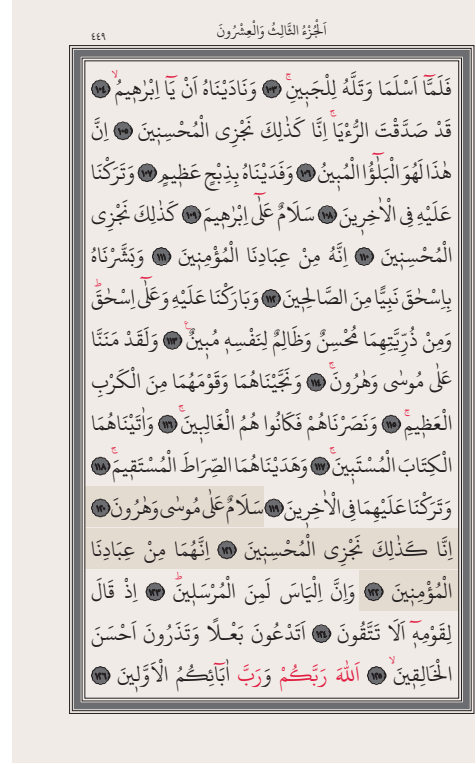 ٤٤٩ اَلْجُزْءُ الثَّالِثُ وَالْعِشْرُونَ
فَلَمَّٓا اَسْلَمَا وَتَلَّهُ لِلْجَبٖينِۚ ﴿١٠٣﴾ وَنَادَيْنَاهُ اَنْ يَٓا اِبْرٰهٖيمُۙ ﴿١٠٤﴾
قَدْ صَدَّقْتَ الرُّءْيَاۚ اِنَّا كَذٰلِكَ نَجْزِى الْمُحْسِنٖينَ ﴿١٠٥﴾ اِنَّ
هٰذَا لَهُوَ الْبَلٰٓؤُ۬ا الْمُبٖينُ ﴿١٠٦﴾ وَفَدَيْنَاهُ بِذِبْحٍ عَظٖيمٍ ﴿١٠٧﴾ وَتَرَكْنَا
عَلَيْهِ فِى الْاٰخِرٖينَ ﴿١٠٨﴾ سَلَامٌ عَلٰٓى اِبْرٰهٖيمَ ﴿١٠٩﴾ كَذٰلِكَ نَجْزِى
الْمُحْسِنٖينَ ﴿١١٠﴾ اِنَّهُ مِنْ عِبَادِنَا الْمُؤْمِنٖينَ ﴿١١١﴾ وَبَشَّرْنَاهُ
بِاِسْحٰقَ نَبِيًّا مِنَ الصَّالِحٖينَ ﴿١١٢﴾ وَبَارَكْنَا عَلَيْهِ وَعَلٰٓى اِسْحٰقَؕ
وَمِنْ ذُرِّيَّتِهِمَا مُحْسِنٌ وَظَالِمٌ لِنَفْسِهٖ مُبٖينٌ۟ ﴿١١٣﴾ وَلَقَدْ مَنَنَّا
عَلٰى مُوسٰى وَهٰرُونَۚ ﴿١١٤﴾ وَنَجَّيْنَاهُمَا وَقَوْمَهُمَا مِنَ الْكَرْبِ
الْعَظٖيمِۚ ﴿١١٥﴾ وَنَصَرْنَاهُمْ فَكَانُوا هُمُ الْغَالِبٖينَۚ ﴿١١٦﴾ وَاٰتَيْنَاهُمَا
الْكِتَابَ الْمُسْتَبٖينَۚ ﴿١١٧﴾ وَهَدَيْنَاهُمَا الصِّرَاطَ الْمُسْتَقٖيمَۚ ﴿١١٨﴾
وَتَرَكْنَا عَلَيْهِمَا فِى الْاٰخِرٖينَ ﴿١١٩﴾ سَلَامٌ عَلٰى مُوسٰى وَهٰرُونَ ﴿١٢٠﴾
اِنَّا كَذٰلِكَ نَجْزِى الْمُحْسِنٖينَ ﴿١٢١﴾ اِنَّهُمَا مِنْ عِبَادِنَا
الْمُؤْمِنٖينَ ﴿١٢٢﴾ وَاِنَّ اِلْيَاسَ لَمِنَ الْمُرْسَلٖينَؕ ﴿١٢٣﴾ اِذْ قَالَ
لِقَوْمِهٖٓ اَلَا تَتَّقُونَ ﴿١٢٤﴾ اَتَدْعُونَ بَعْلًا وَتَذَرُونَ اَحْسَنَ
الْخَالِقٖينَۙ ﴿١٢٥﴾ اَللّٰهَ رَبَّكُمْ وَرَبَّ اٰبَٓائِكُمُ الْاَوَّلٖينَ ﴿١٢٦﴾